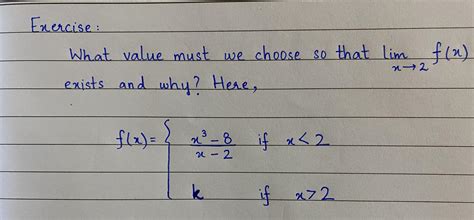 Exercise:
What value must we choose so that lim x→2 f(x)
exists and why? Here,
f(x) = { (x³ - 8)/(x - 2) if x < 2
k if x > 2